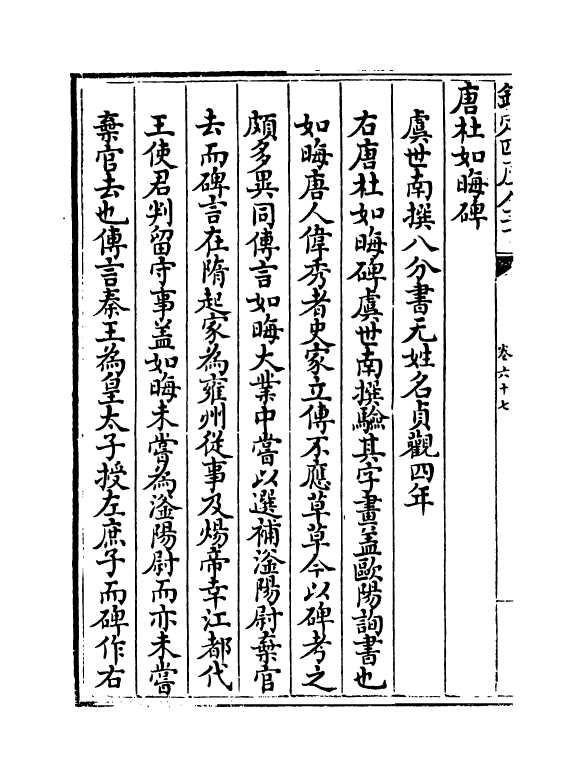 欽定四庫全書
卷六十七
唐杜如晦碑
虞世南撰八分書无姓名貞觀四年
右唐杜如晦碑虞世南撰驗其字畫蓋歐陽詢書也
如晦唐人偉秀者史家立傳不應草草今以碑考之
頗多異同傳言如晦大業中嘗以選補滏陽尉棄官
去而碑言在隋起家為雍州從事及煬帝幸江都代
王使君判留守事盖如晦未嘗為滏陽尉而亦未嘗
棄官去也傳言秦王為皇太子授左庶子而碑作右